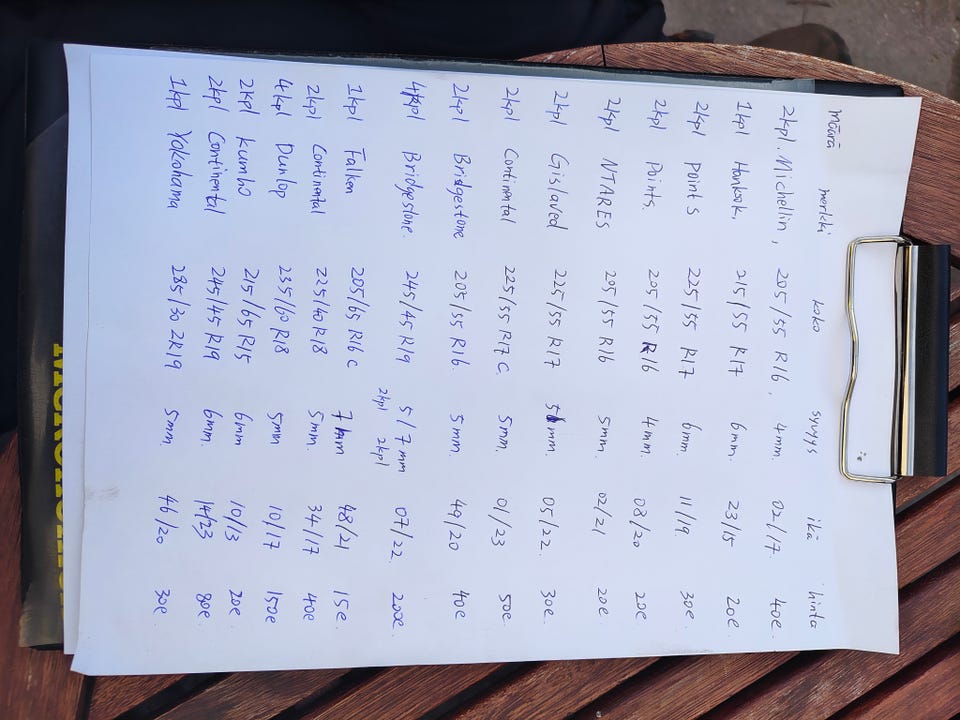 määrä merkki koko syvyys ikä hinta
2kpl. Michellin, 205/55 R16, 4mm. 02/17. 40e.
1kpl Hankok. 215/55 R17 6mm. 23/15 20e
2kpl points 225/55 R17 6mm. 11/19. 30e
2kpl Points. 205/55 R16 4mm. 08/20 20e
2kpl NTARES 205/55 R16 5mm. 02/21 20e
2kpl Gislaved 225/55 R17 5mm. 05/22. 30e
2kpl Continental 225/55 R17 C. 5mm. 01/23 50e
2kpl Bridgestone 205/55 R16. 5mm. 49/20 40e
4kpl Bridgestone. 245/45 R19 5/7mm 07/22. 200e.
2kpl 2kpl
1kpl Falken 205/65 R16 C 7mm 48/21 15e.
2kpl Continental 225/40 R18 5mm. 34/17 40e
4kpl Dunlop 235/60 R18 5mm 10/17 150e
2kpl Kumho 215/65 R15 6mm 10/13 20e.
2kpl Continental 245/45 R19 6mm. 14/23 80e.
1kpl Yokohama 285/30 ZR19 5mm. 46/20 30e